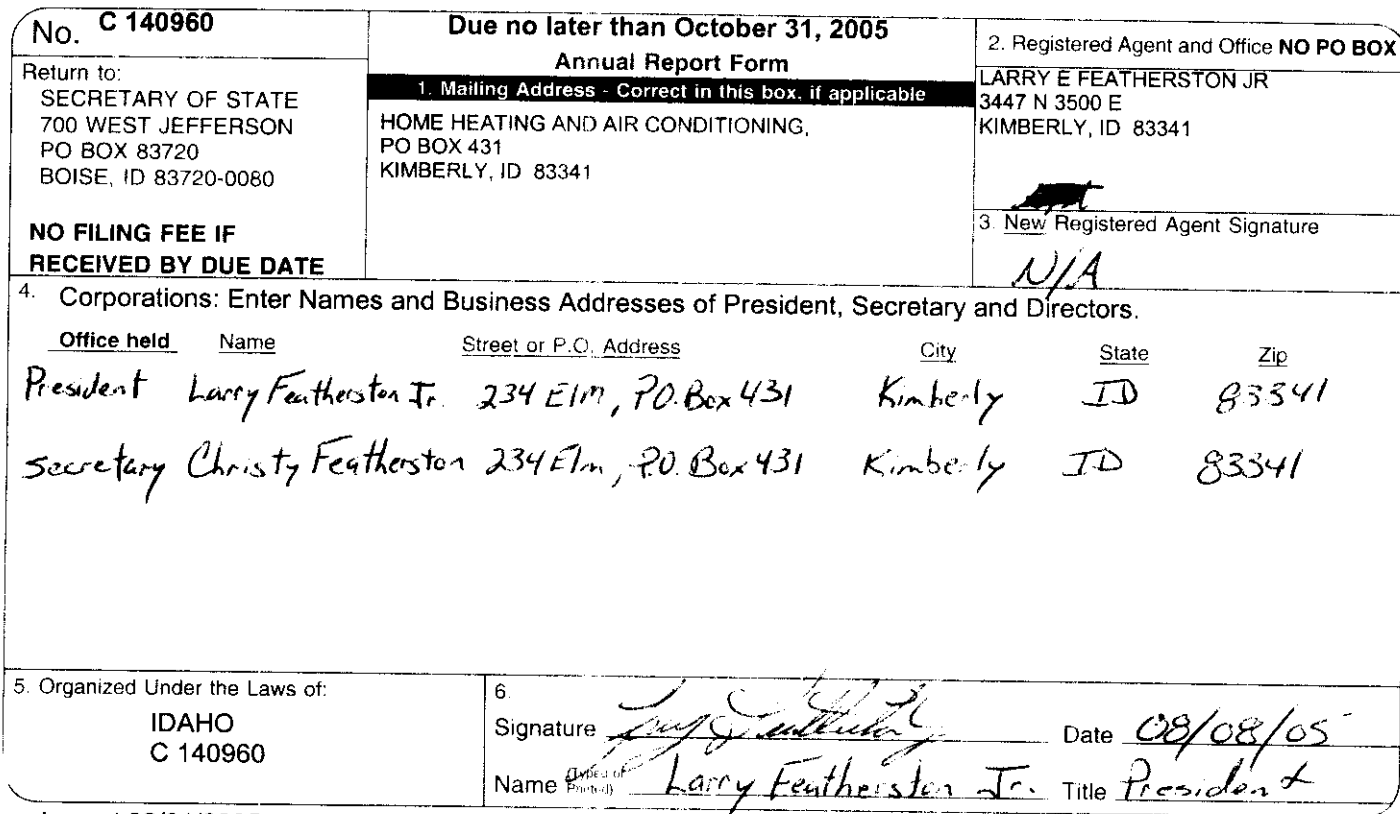 No. C 140960
Return to:
SECRETARY OF STATE
700 WEST JEFFERSON
PO BOX 83720
BOISE, ID 83720-0080
NO FILING FEE IF
RECEIVED BY DUE DATE
Due no later than October 31, 2005
Annual Report Form
1. Mailing Address - Correct in this box, if applicable
HOME HEATING AND AIR CONDITIONING,
PO BOX 431
KIMBERLY, ID 83341
2. Registered Agent and Office NO PO BOX
LARRY E FEATHERSTON JR
3447 N 3500 E
KIMBERLY, ID 83341
3. New Registered Agent Signature
N/A
4. Corporations: Enter Names and Business Addresses of President, Secretary and Directors.
Office held Name Street or P.O. Address City State Zip
President Larry Featherston Jr. 234 Elm, P.O. Box 431 Kimberly ID 83341
secretary Christy Featherston 234 Elm, P.O. Box 431 Kimberly ID 83341
5. Organized Under the Laws of:
IDAHO
C 140960
6.
Signature Date 08/08/05
Name (Typed or Printed) Larry Featherston Jr. Title President